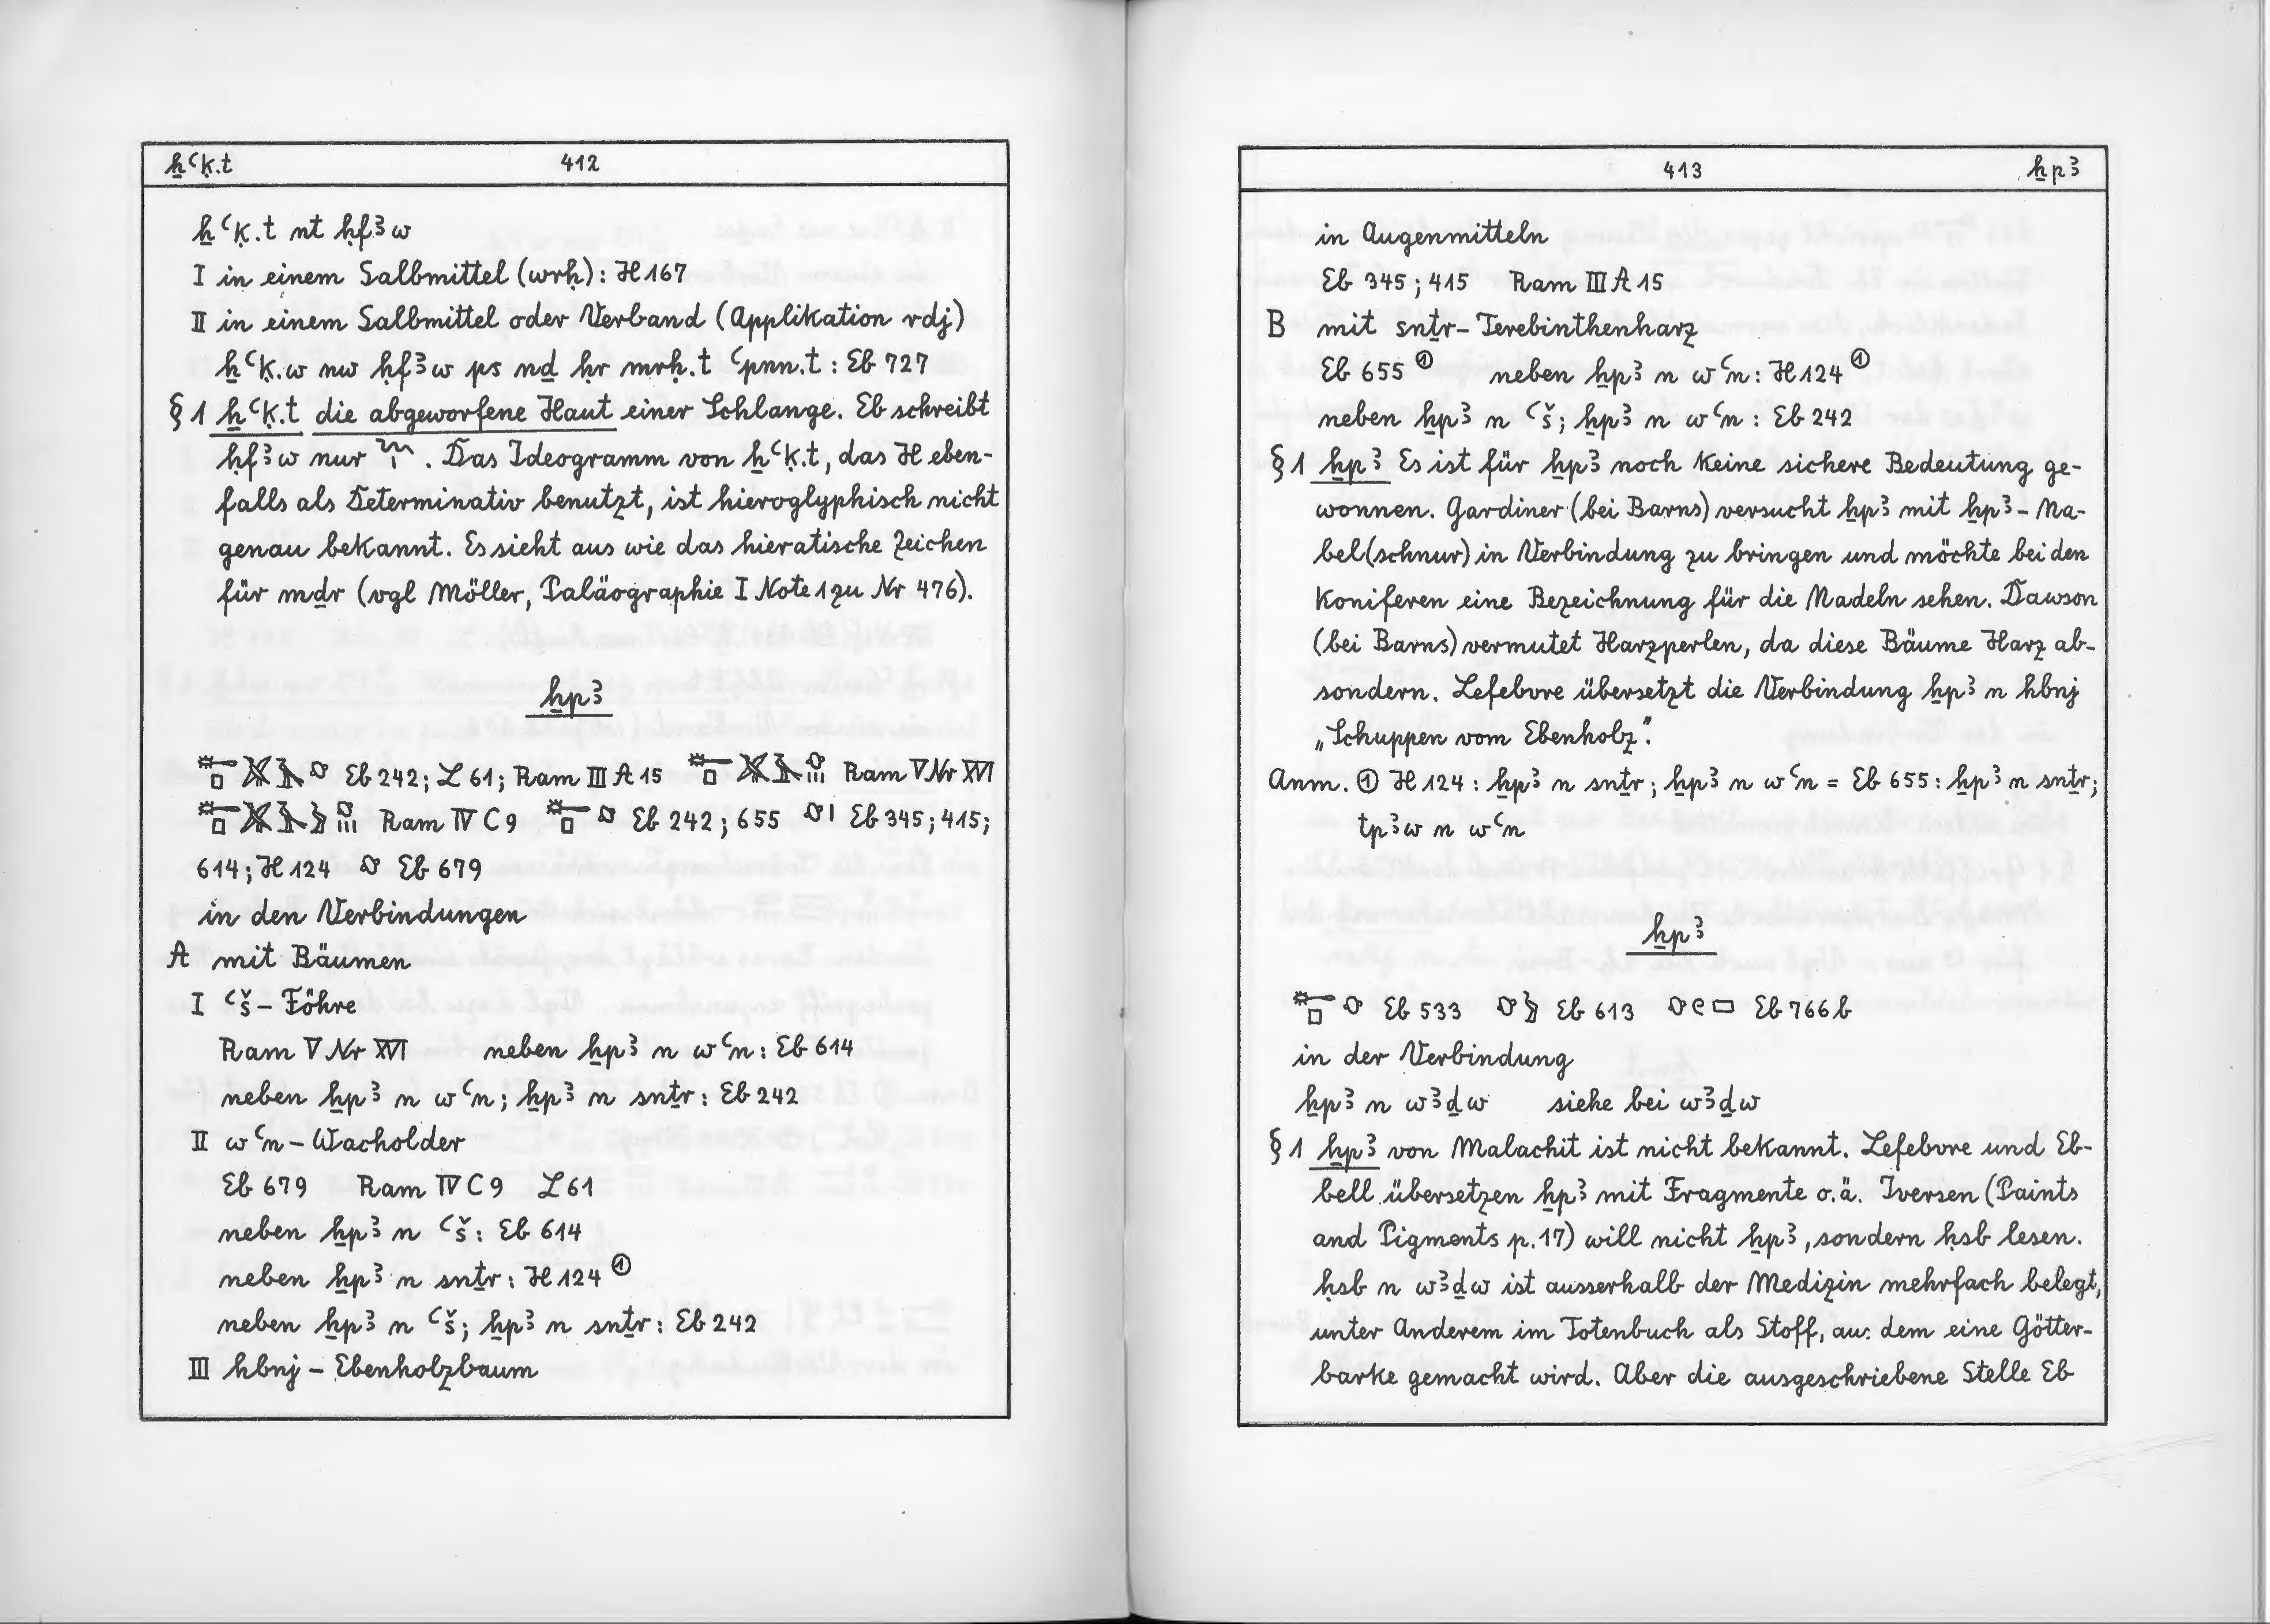 ẖꜥḳ.t 412
ẖꜥḳ.t nt ḥfꜣw
I in einem Salbmittel (wrḥ): H 167
II in einem Salbmittel oder Verband (Applikation rdj)
ẖꜥḳ.w nw ḥfꜣw ps nḏ ḥr mrḥ.t ꜥpnn.t : Eb 727
§ 1 ẖꜥḳ.t die abgeworfene Haut einer Schlange. Eb schreibt
ḥfꜣw nur . Das Ideogramm von ẖꜥḳ.t, das H eben-
falls als Determinativ benutzt, ist hieroglyphisch nicht
genau bekannt. Es sieht aus wie das hieratische Zeichen
für mḏr (vgl Möller, Paläographie I Note 1 zu Nr 476).
ẖpꜣ
Eb 242; L 61; Ram III A 15 Ram V Nr XVI
Ram IV C 9 Eb 242; 655 Eb 345; 415;
614; H 124 Eb 679
in den Verbindungen
A mit Bäumen
I ꜥš – Föhre
Ram V Nr XVI neben ẖpꜣ n wꜥn : Eb 614
neben ẖpꜣ n wꜥn; ẖpꜣ n snṯr : Eb 242
II wꜥn – Wacholder
Eb 679 Ram IV C 9 L 61
neben ẖpꜣ n ꜥš : Eb 614
neben ẖpꜣ n snṯr : H 124 ①
neben ẖpꜣ n ꜥš; ẖpꜣ n snṯr : Eb 242
III hbnj – Ebenholzbaum
413 ẖpꜣ
in Augenmitteln
Eb 345; 415 Ram III A 15
B mit snṯr – Terebinthenharz
Eb 655 ① neben ẖpꜣ n wꜥn : H 124 ①
neben ẖpꜣ n ꜥš; ẖpꜣ n wꜥn : Eb 242
§ 1 ẖpꜣ Es ist für ẖpꜣ noch keine sichere Bedeutung ge-
wonnen. Gardiner (bei Barns) versucht ẖpꜣ mit ẖpꜣ – Na-
bel(schnur) in Verbindung zu bringen und möchte bei den
Koniferen eine Bezeichnung für die Nadeln sehen. Dawson
(bei Barns) vermutet Harzperlen, da diese Bäume Harz ab-
sondern. Lefebvre übersetzt die Verbindung ẖpꜣ n hbnj
„Schuppen vom Ebenholz“.
Anm. ① H 124 : ẖpꜣ n snṯr; ẖpꜣ n wꜥn = Eb 655 : ẖpꜣ n snṯr;
tpꜣw n wꜥn
ẖpꜣ
Eb 533 Eb 613 Eb 766b
in der Verbindung
ẖpꜣ n wꜣḏw siehe bei wꜣḏw
§ 1 ẖpꜣ von Malachit ist nicht bekannt. Lefebvre und Eb-
bell übersetzen ẖpꜣ mit Fragmente o.ä. Iversen (Paints
and Pigments p. 17) will nicht ẖpꜣ, sondern ḥsb lesen.
ḥsb n wꜣḏw ist ausserhalb der Medizin mehrfach belegt,
unter Anderem im Totenbuch als Stoff, aus dem eine Götter-
barke gemacht wird. Aber die ausgeschriebene Stelle Eb